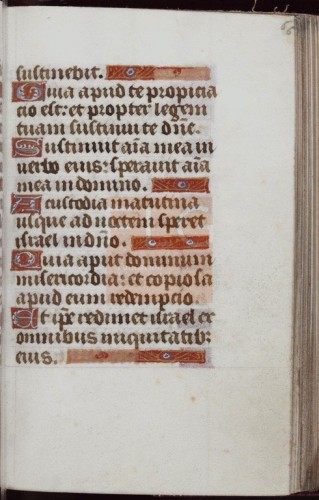 sustinebit.
Quia apud te propicia
cio est: et propter legem
tuam sustinui te dñe.
Sustinuit aīa mea in
verbo eius: speravit aīa
mea in domino.
A custodia matutina
usque ad noctem speret
israel in dño.
Quia aput dominum
misericordia: et copiosa
apud eum redempcio.
Et ip̄e redimet israel ex
omnibus iniquitatibꝫ
eius.